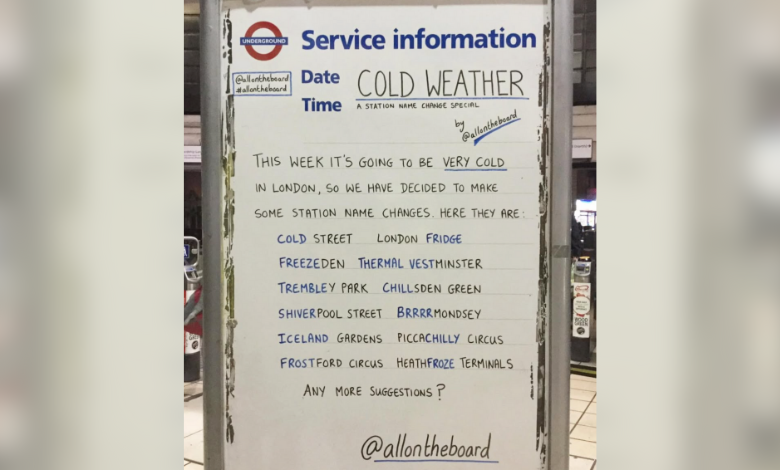 UNDERGROUND
Service information
@allontheboard
#allontheboard
Date
Time
COLD WEATHER
A STATION NAME CHANGE SPECIAL
by @allontheboard
THIS WEEK IT'S GOING TO BE VERY COLD
IN LONDON, SO WE HAVE DECIDED TO MAKE
SOME STATION NAME CHANGES. HERE THEY ARE:
COLD STREET LONDON FRIDGE
FREEZEDEN THERMAL VESTMINSTER
TREMBLEY PARK CHILLSDEN GREEN
SHIVERPOOL STREET BRRRRMONDSEY
ICELAND GARDENS PICCACHILLY CIRCUS
FROSTFORD CIRCUS HEATHFROZE TERMINALS
ANY MORE SUGGESTIONS?
@allontheboard